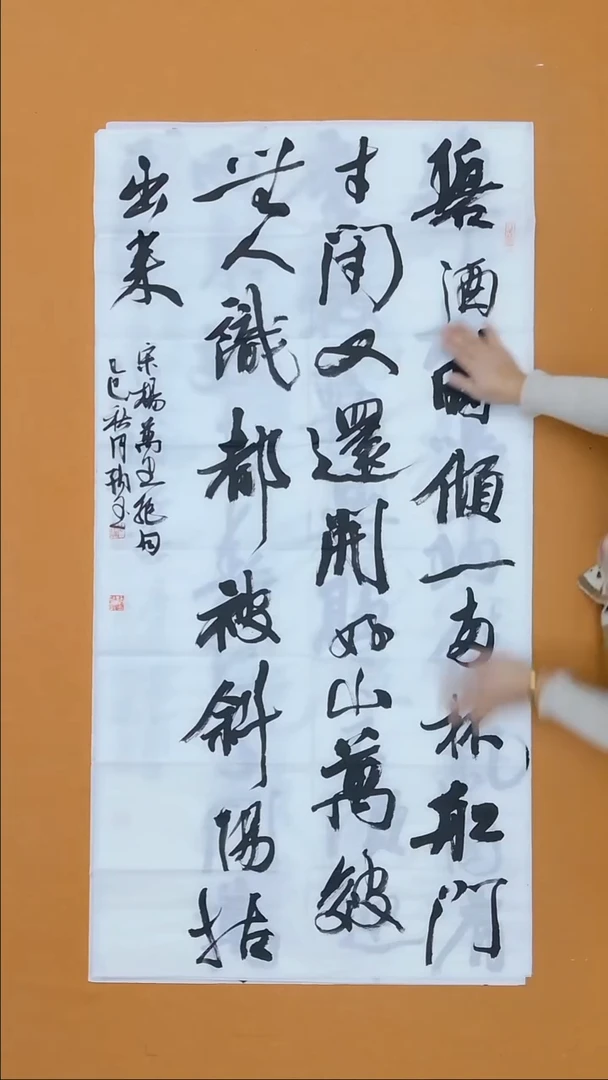 碧酒時傾一兩杯船門
才閉又還開好山萬皺
無人識都被斜陽拈
出來
宋楊萬里絕句
乙巳秋月